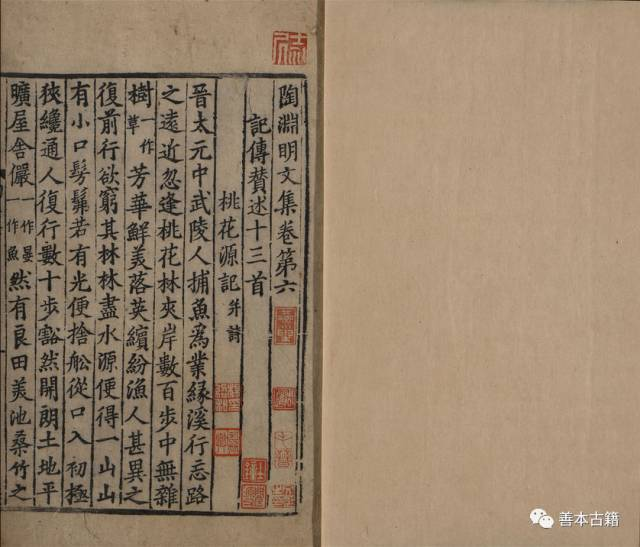 陶淵明文集卷第六
記傳賛述十三首
桃花源記并詩
晉太元中武陵人捕魚爲業緣溪行忘路
之遠近忽逢桃花林夾岸數百步中無雜
樹一作草芳華鮮美落英繽紛漁人甚異之
復前行欲窮其林林盡水源便得一山山
有小口髣髴若有光便捨舩從口入初極
狹纔通人復行數十步豁然開朗土地平
曠屋舍儼一作晏一作魚然有良田美池桑竹之
善本古籍